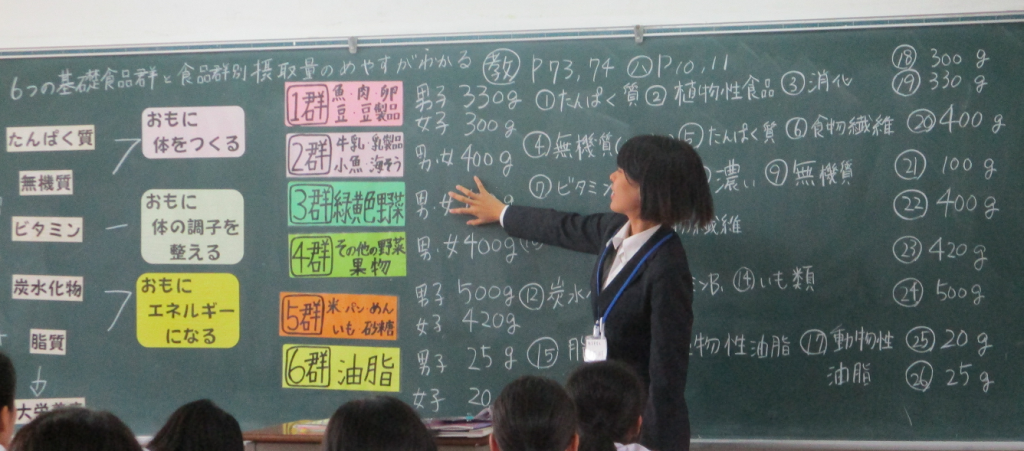 6つの基礎食品群と食品群別摂取量のめやすがわかる 教 P73,74 八P10,11
たんぱく質
無機質
ビタミン
炭水化物
脂質
おもに
体をつくる
おもに
体の調子を
整える
おもに
エネルギー
になる
1群 魚・肉・卵
豆・豆製品
2群 牛乳・乳製品
小魚・海そう
3群 緑黄色野菜
4群 その他の野菜
果物
5群 米・パン・めん
いも・砂糖
6群 油脂
男子 330g
女子 300g
男・女 400g
男・女
男・女 400g
男子 500g
女子 420g
男子 25g
女子 20
①たんぱく質 ② 植物性食品 ③ 消化
④ 無機質( ⑤ たんぱく質 ⑥ 食物繊維
⑦ ビタミン 濃い ⑨ 無機質
繊維
⑫ 炭水 ミンB₁ ⑭ いも類
⑮ 脂 物性油脂 ⑰ 動物性
油脂
⑱ 300g
⑲ 330g
⑳ 400g
㉑ 100g
㉒ 400g
㉓ 420g
㉔ 500g
㉕ 20g
㉖ 25g